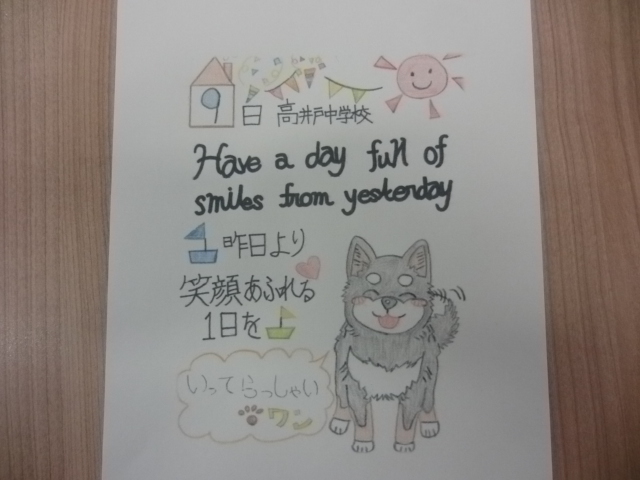 9日 高井戸中学校
Have a day full of
smiles from yesterday
昨日より
笑顔あふれる
1日を
いってらっしゃい
ワン